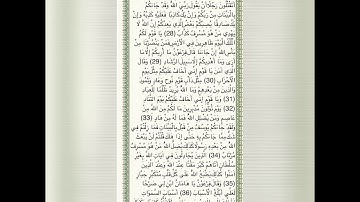 أَتَقْتُلُونَ رَجُلًا أَن يَقُولَ رَبِّيَ اللَّهُ وَقَدْ جَاءَكُم
بِالْبَيِّنَاتِ مِن رَّبِّكُمْ وَإِن يَكُ كَاذِبًا فَعَلَيْهِ كَذِبُهُ وَإِن
يَكُ صَادِقًا يُصِبْكُم بَعْضُ الَّذِي يَعِدُكُمْ إِنَّ اللَّهَ لَا
يَهْدِي مَنْ هُوَ مُسْرِفٌ كَذَّابٌ (28) يَا قَوْمِ لَكُمُ
الْمُلْكُ الْيَوْمَ ظَاهِرِينَ فِي الْأَرْضِ فَمَن يَنصُرُنَا مِن
بَأْسِ اللَّهِ إِن جَاءَنَا قَالَ فِرْعَوْنُ مَا أُرِيكُمْ إِلَّا مَا
أَرَى وَمَا أَهْدِيكُمْ إِلَّا سَبِيلَ الرَّشَادِ (29) وَقَالَ
الَّذِي آمَنَ يَا قَوْمِ إِنِّي أَخَافُ عَلَيْكُم مِّثْلَ يَوْمِ
الْأَحْزَابِ (30) مِثْلَ دَأْبِ قَوْمِ نُوحٍ وَعَادٍ وَثَمُودَ
وَالَّذِينَ مِن بَعْدِهِمْ وَمَا اللَّهُ يُرِيدُ ظُلْمًا لِّلْعِبَادِ
(31) وَيَا قَوْمِ إِنِّي أَخَافُ عَلَيْكُمْ يَوْمَ التَّنَادِ
(32) يَوْمَ تُوَلُّونَ مُدْبِرِينَ مَا لَكُم مِّنَ اللَّهِ مِنْ
عَاصِمٍ وَمَن يُضْلِلِ اللَّهُ فَمَا لَهُ مِنْ هَادٍ (33)
وَلَقَدْ جَاءَكُمْ يُوسُفُ مِن قَبْلُ بِالْبَيِّنَاتِ فَمَا زِلْتُمْ فِي
شَكٍّ مِّمَّا جَاءَكُم بِهِ حَتَّى إِذَا هَلَكَ قُلْتُمْ لَن يَبْعَثَ
اللَّهُ مِن بَعْدِهِ رَسُولًا كَذَلِكَ يُضِلُّ اللَّهُ مَنْ هُوَ مُسْرِفٌ
مُّرْتَابٌ (34) الَّذِينَ يُجَادِلُونَ فِي آيَاتِ اللَّهِ بِغَيْرِ
سُلْطَانٍ أَتَاهُمْ كَبُرَ مَقْتًا عِندَ اللَّهِ وَعِندَ الَّذِينَ
آمَنُوا كَذَلِكَ يَطْبَعُ اللَّهُ عَلَى كُلِّ قَلْبِ مُتَكَبِّرٍ جَبَّارٍ
(35) وَقَالَ فِرْعَوْنُ يَا هَامَانُ ابْنِ لِي صَرْحًا
لَّعَلِّي أَبْلُغُ الْأَسْبَابَ (36) أَسْبَابَ السَّمَوَاتِ